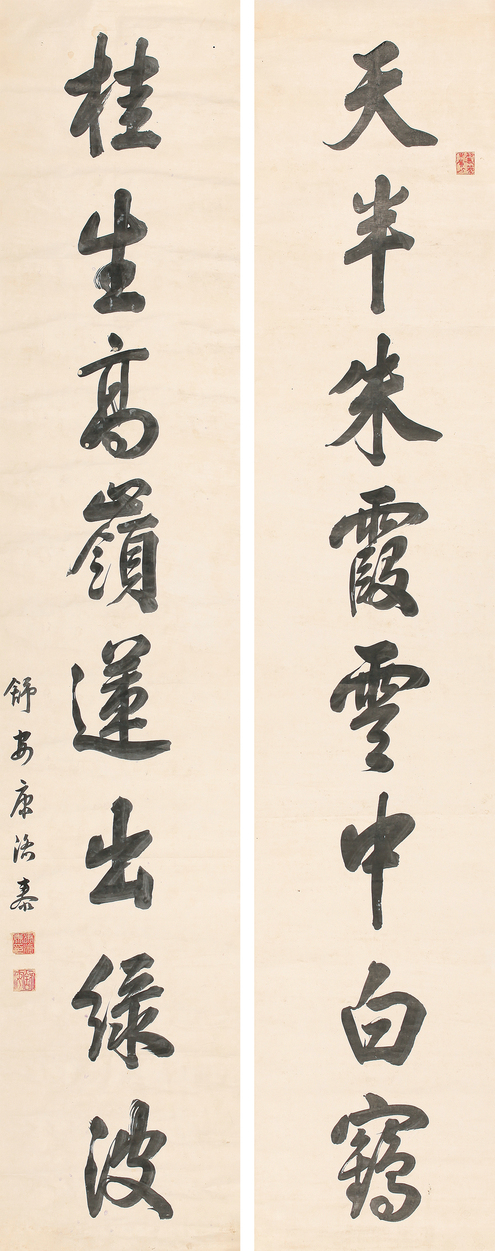 天半朱霞雲中白鶴
桂生高嶺蓮出緑波
舒安康洛泰